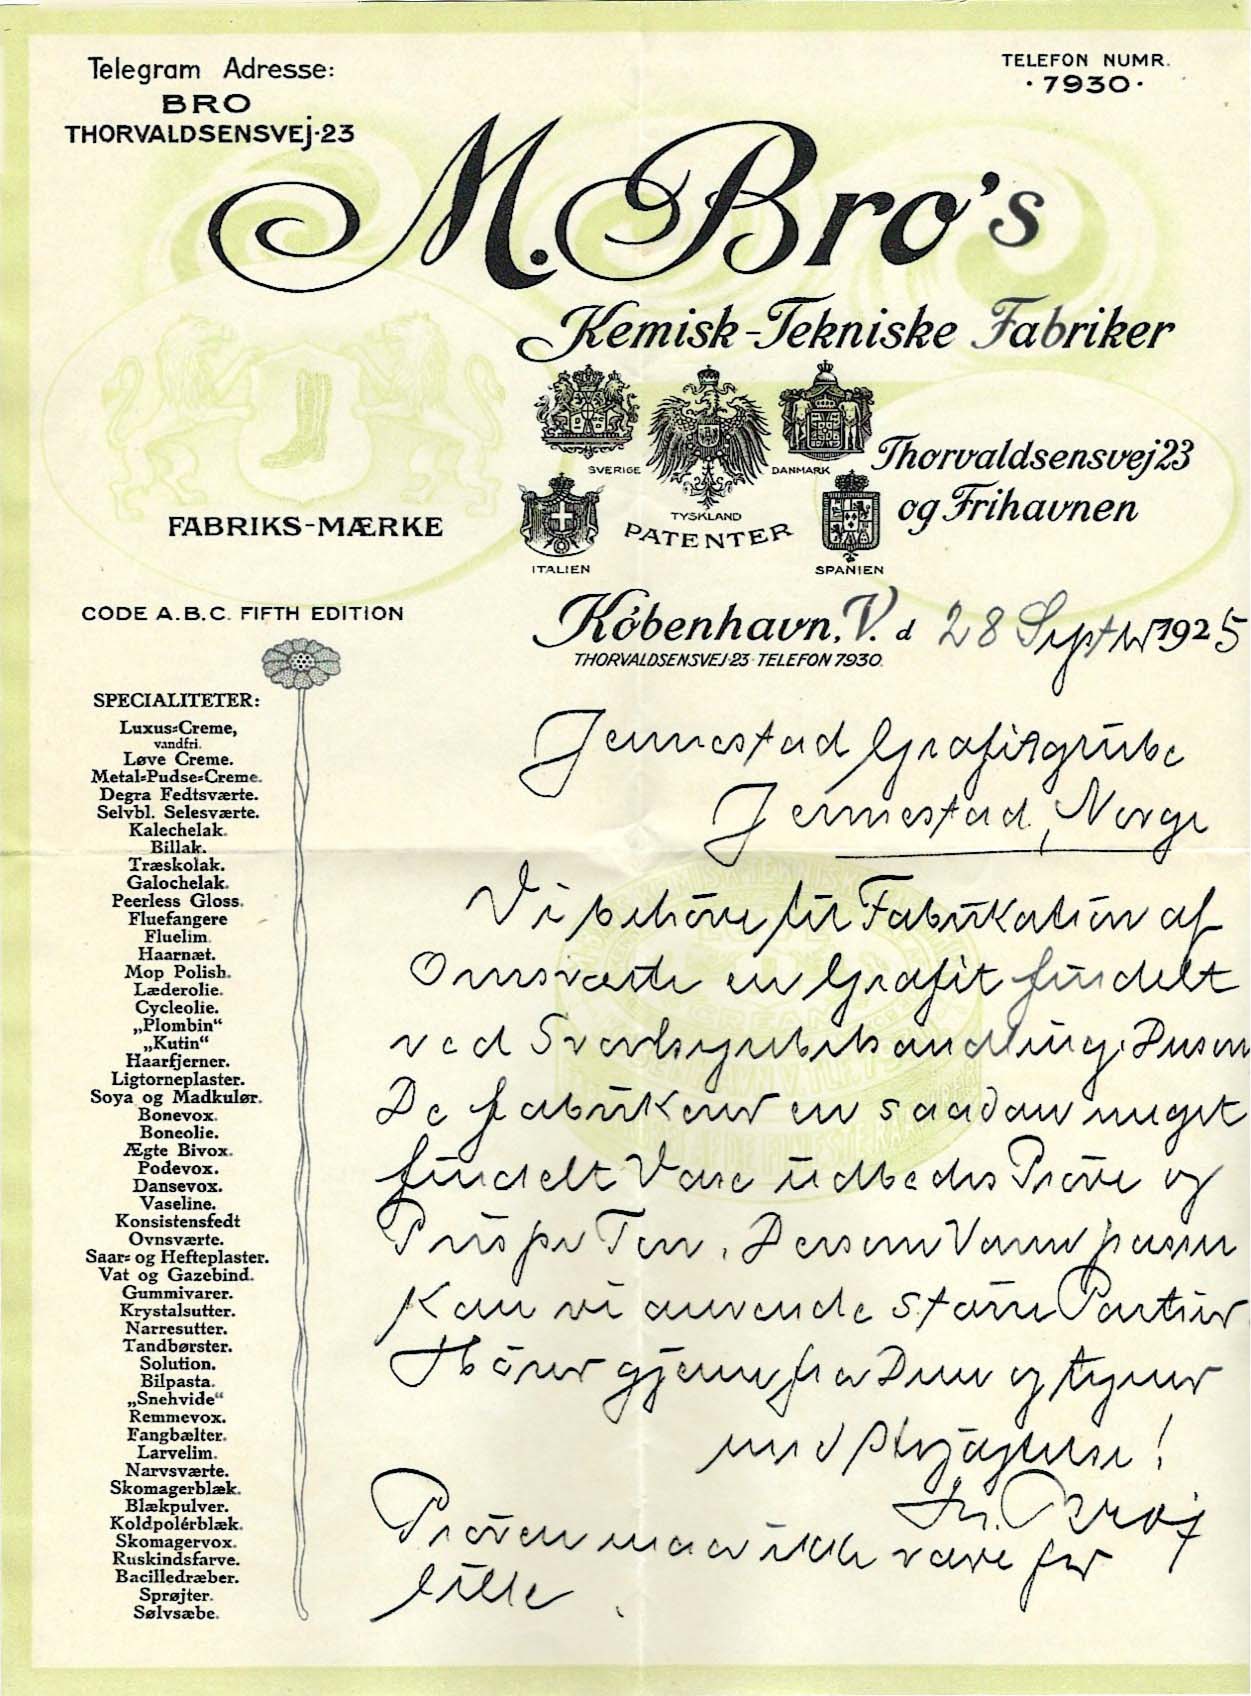 Telegram Adresse:
BRO
THORVALDSENSVEJ·23
TELEFON NUMR.
·7930·
M. Bro's
Kemisk-Tekniske Fabriker
SVERIGE
TYSKLAND
DANMARK
ITALIEN
PATENTER
SPANIEN
Thorvaldsensvej 23
og Frihavnen
FABRIKS-MÆRKE
CODE A.B.C. FIFTH EDITION
København, V. d 28 Septbr 1925
THORVALDSENSVEJ·23· TELEFON 7930.
SPECIALITETER:
Luxus=Creme,
vandfri.
Løve Creme.
Metal=Pudse=Creme.
Degra Fedtsværte.
Selvbl. Selesværte.
Kalechelak.
Billak.
Træskolak.
Galochelak.
Peerless Gloss.
Fluefangere
Fluelim.
Haarnæt.
Mop Polish.
Læderolie.
Cycleolie.
„Plombin“
„Kutin“
Haarfjerner.
Ligtorneplaster.
Soya og Madkulør.
Bonevox.
Boneolie.
Ægte Bivox.
Podevox.
Dansevox.
Vaseline.
Konsistensfedt
Ovnsværte.
Saar= og Hefteplaster.
Vat og Gazebind.
Gummivarer.
Krystalsutter.
Narresutter.
Tandbørster.
Solution.
Bilpasta.
„Snehvide“
Remmevox.
Fangbælter.
Larvelim.
Narvsværte.
Skomagerblæk.
Blækpulver.
Koldpolérblæk.
Skomagervox.
Ruskindsfarve.
Bacilledræber.
Sprøjter.
Sølvsæbe.
Jennestad Grafitgrube
Jennestad, Norge
Vi behöver til Fabrikation af
Ovnsværte en Grafit findelt
ved Svovlsyrebehandling. Dersom
De fabrikerer en saadan meget
findelt Vare udbedes Pröve og
Pris pr Ton. Dersom Varen passer
kan vi anvende störe Partier
Hörer gjerne fra Dem og tegner
med Höjagtelse!
M. Bro
Pröven maa ikke være for
lille.